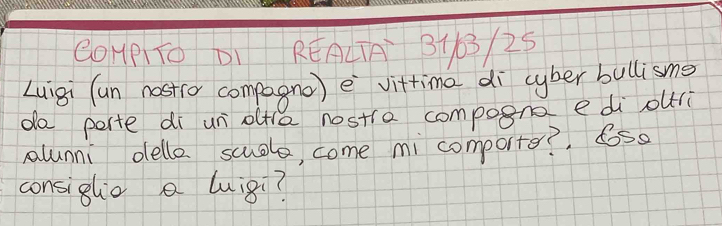 COMPITO DI REALTÀ 31/03/25
Luigi (un nostro compagno) è vittima di cyber bullismo
da parte di un altra nostra compagna e di altri
alunni della scuola, come mi comporto?. Cosa
consiglio a Luigi?